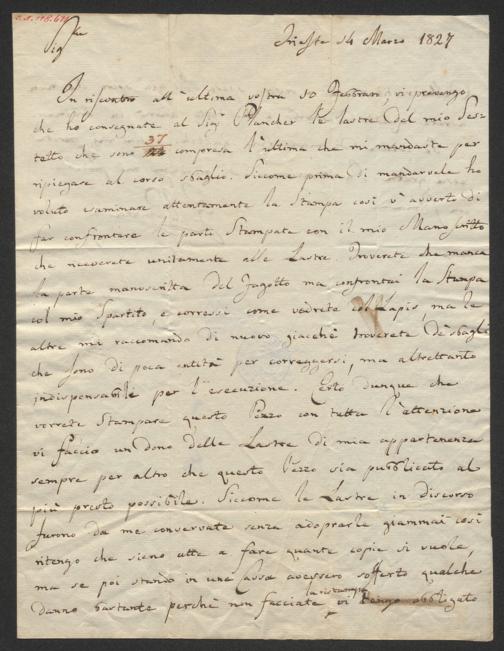 Sig.re
Trieste 14 Marzo 1827
In riscontro all' ultima vostra 10 Febbraro, vi prevengo
che ho consegnate al Sigr Plancher le lastre del mio Ses=
tetto che sono 37 compresa l'ultima che mi mandaste per
ripiegare al corso sbaglio. Siccome prima di mandarvele ho
voluto esaminare attentamente la Stampa così v' avverto di
far confrontare le parti Stampate con il mio Manoscritto
che riceverete unitamente alle Lastre. Troverete che manca
la parte manoscritta del Fagotto ma confrontai la Stampa
col mio Spartito, e corressi come vedrete col Lapis, ma le
altre mi raccomando di nuovo giacchè troverete de' sbagli
che sono di poca entità per correggersi, ma altrettanto
indispensabile per l'esecuzione. Certo dunque che
vorrete Stampare questo Pezzo con tutta l'attenzione
vi faccio un dono delle Lastre di mia appartenenza
sempre per altro che questo Pezzo sia pubblicato al
più presto possibile. Siccome le Lastre in discorso
furono da me conservate senza adoprarle giammai così
ritengo che sieno atte a fare quante copie si vuole,
ma se poi stando in una Cassa avessero sofferto qualche
la ristampa
danno bastante perchè non facciate vi tengo obbligato